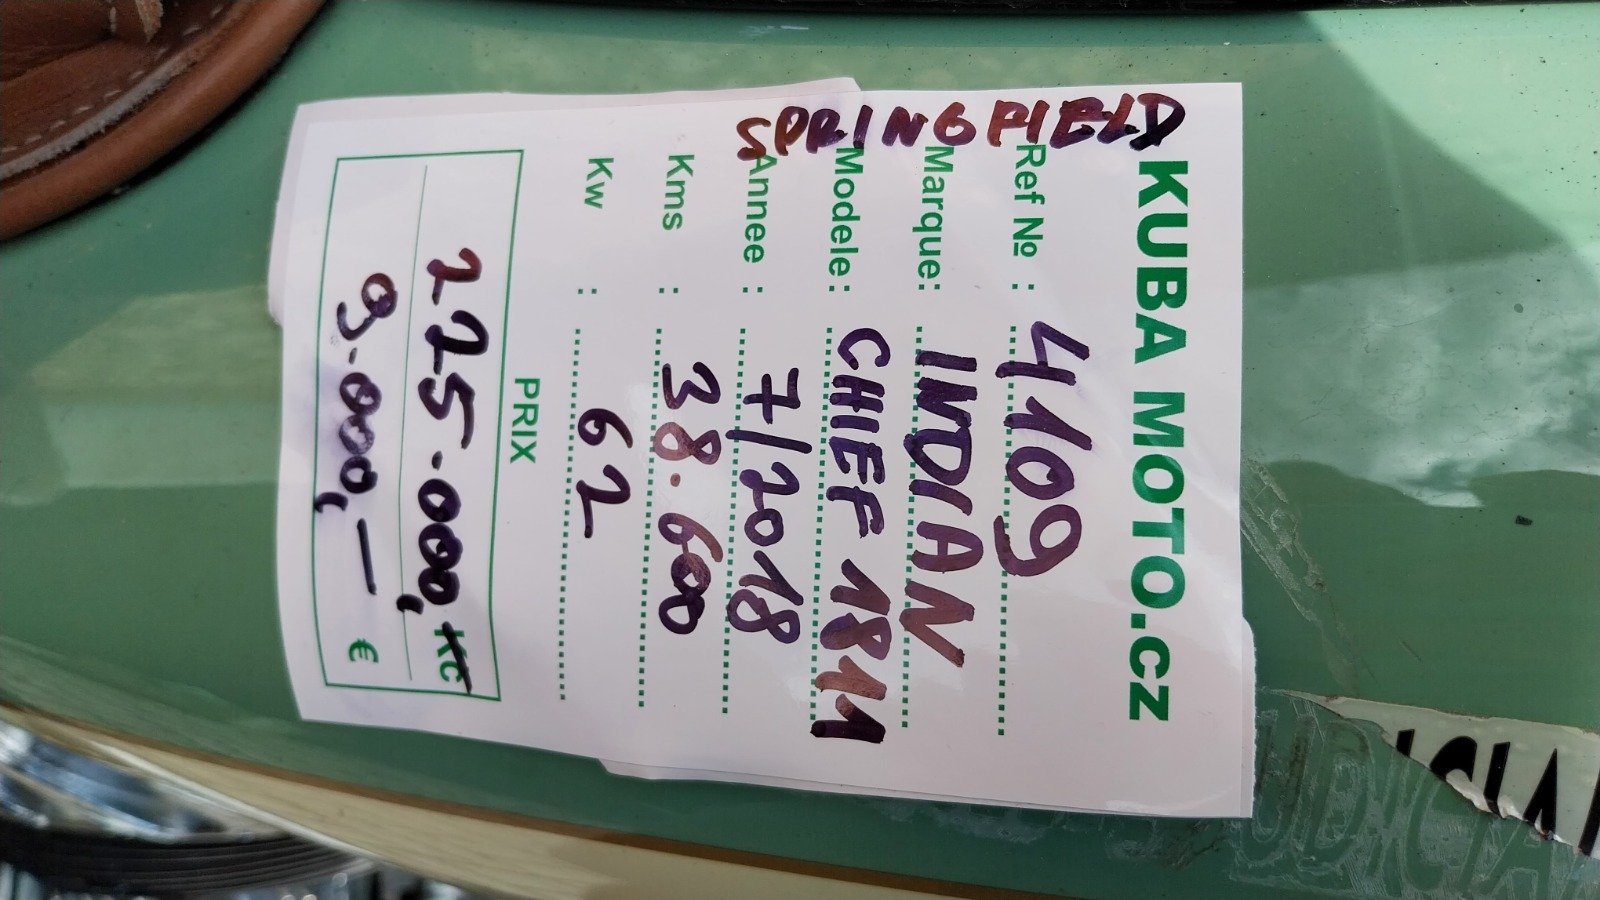 SPRINGFIELD
KUBA MOTO.cz
Ref № : 4109
Marque: INDIAN
Modele: CHIEF 1811
Annee : 7/2018
Kms : 38.600
Kw : 62
PRIX
225.000,- Kč
9.000,- €